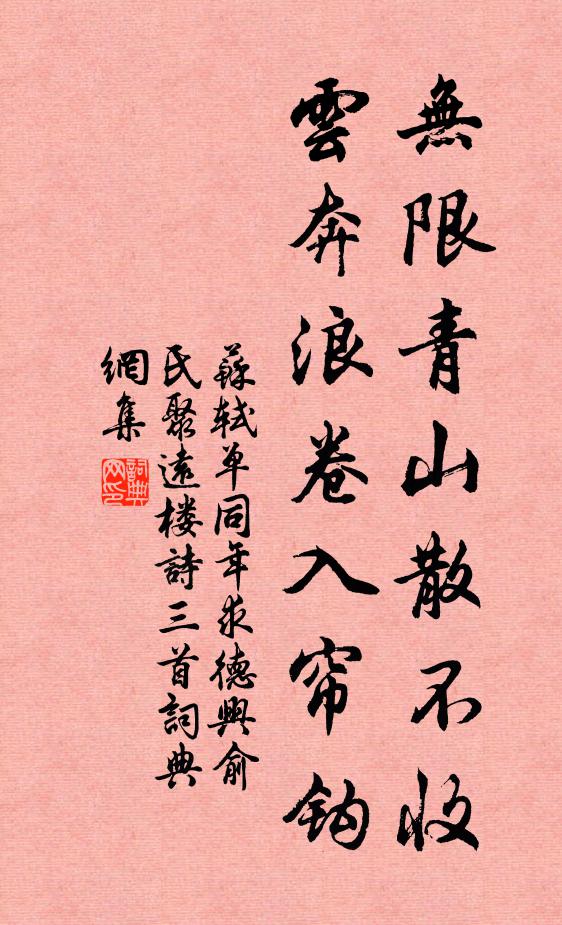 無限青山散不收
雲奔浪卷入帘鈎
蘇軾单同年求德興俞
氏聚遠楼詩三首詞典
網集
詞典
网印